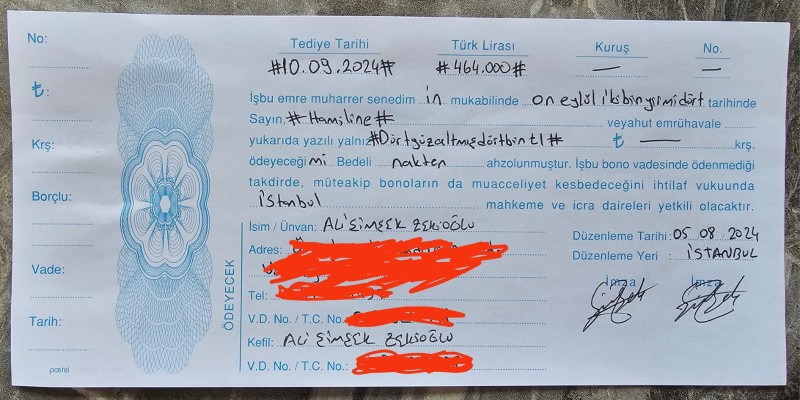 No:
₺:
Krş:
Borçlu:
Vade:
Tarih:
pastel
Tediye Tarihi Türk Lirası Kuruş No.
#10.09.2024# #464.000# — —
İşbu emre muharrer senedim in mukabilinde on eylül ikibinyirmidört tarihinde
Sayın, #Hamiline# veyahut emrühavale
yukarıda yazılı yalnız #Dörtyüzaltmışdörtbintl# ₺ — krş.
ödeyeceğimi Bedeli nakten ahzolunmuştur. İşbu bono vadesinde ödenmediği
takdirde, müteakip bonoların da muacceliyet kesbedeceğini ihtilaf vukuunda
istanbul mahkeme ve icra daireleri yetkili olacaktır.
ÖDEYECEK
İsim / Ünvan: ALİ ŞİMŞEK ZEKİOĞLU
Adres:
Tel:
V.D. No. / T.C. No.
Kefil: ALİ ŞİMŞEK ZEKİOĞLU
V.D. No. / T.C. No.:
Düzenleme Tarihi: 05 08 2024
Düzenleme Yeri : İSTANBUL
İmza İmza